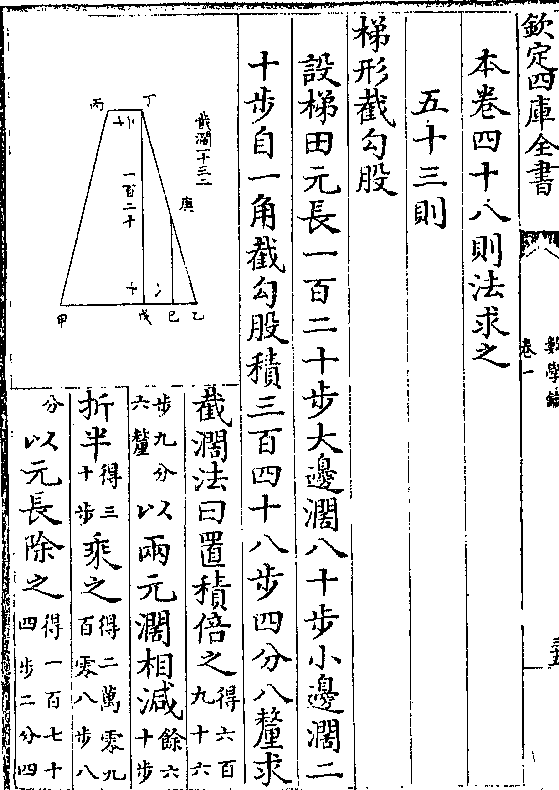 欽定四庫全書
數學鑰
卷一
本卷四十八則法求之
五十三則
梯形截勾股
設梯田元長一百二十步大邊濶八十步小邊濶二
十步自一角截勾股積三百四十八步四分八釐求
截濶法曰置積倍之得六百九十六
步九分六釐以兩元濶相減餘六十步
折半得三十步乘之得二萬零九百零八步八
分以元長除之得一百七十四步二分四
截濶一十三二
丁
丙
庚
一百二十
乙
巳
戊
甲